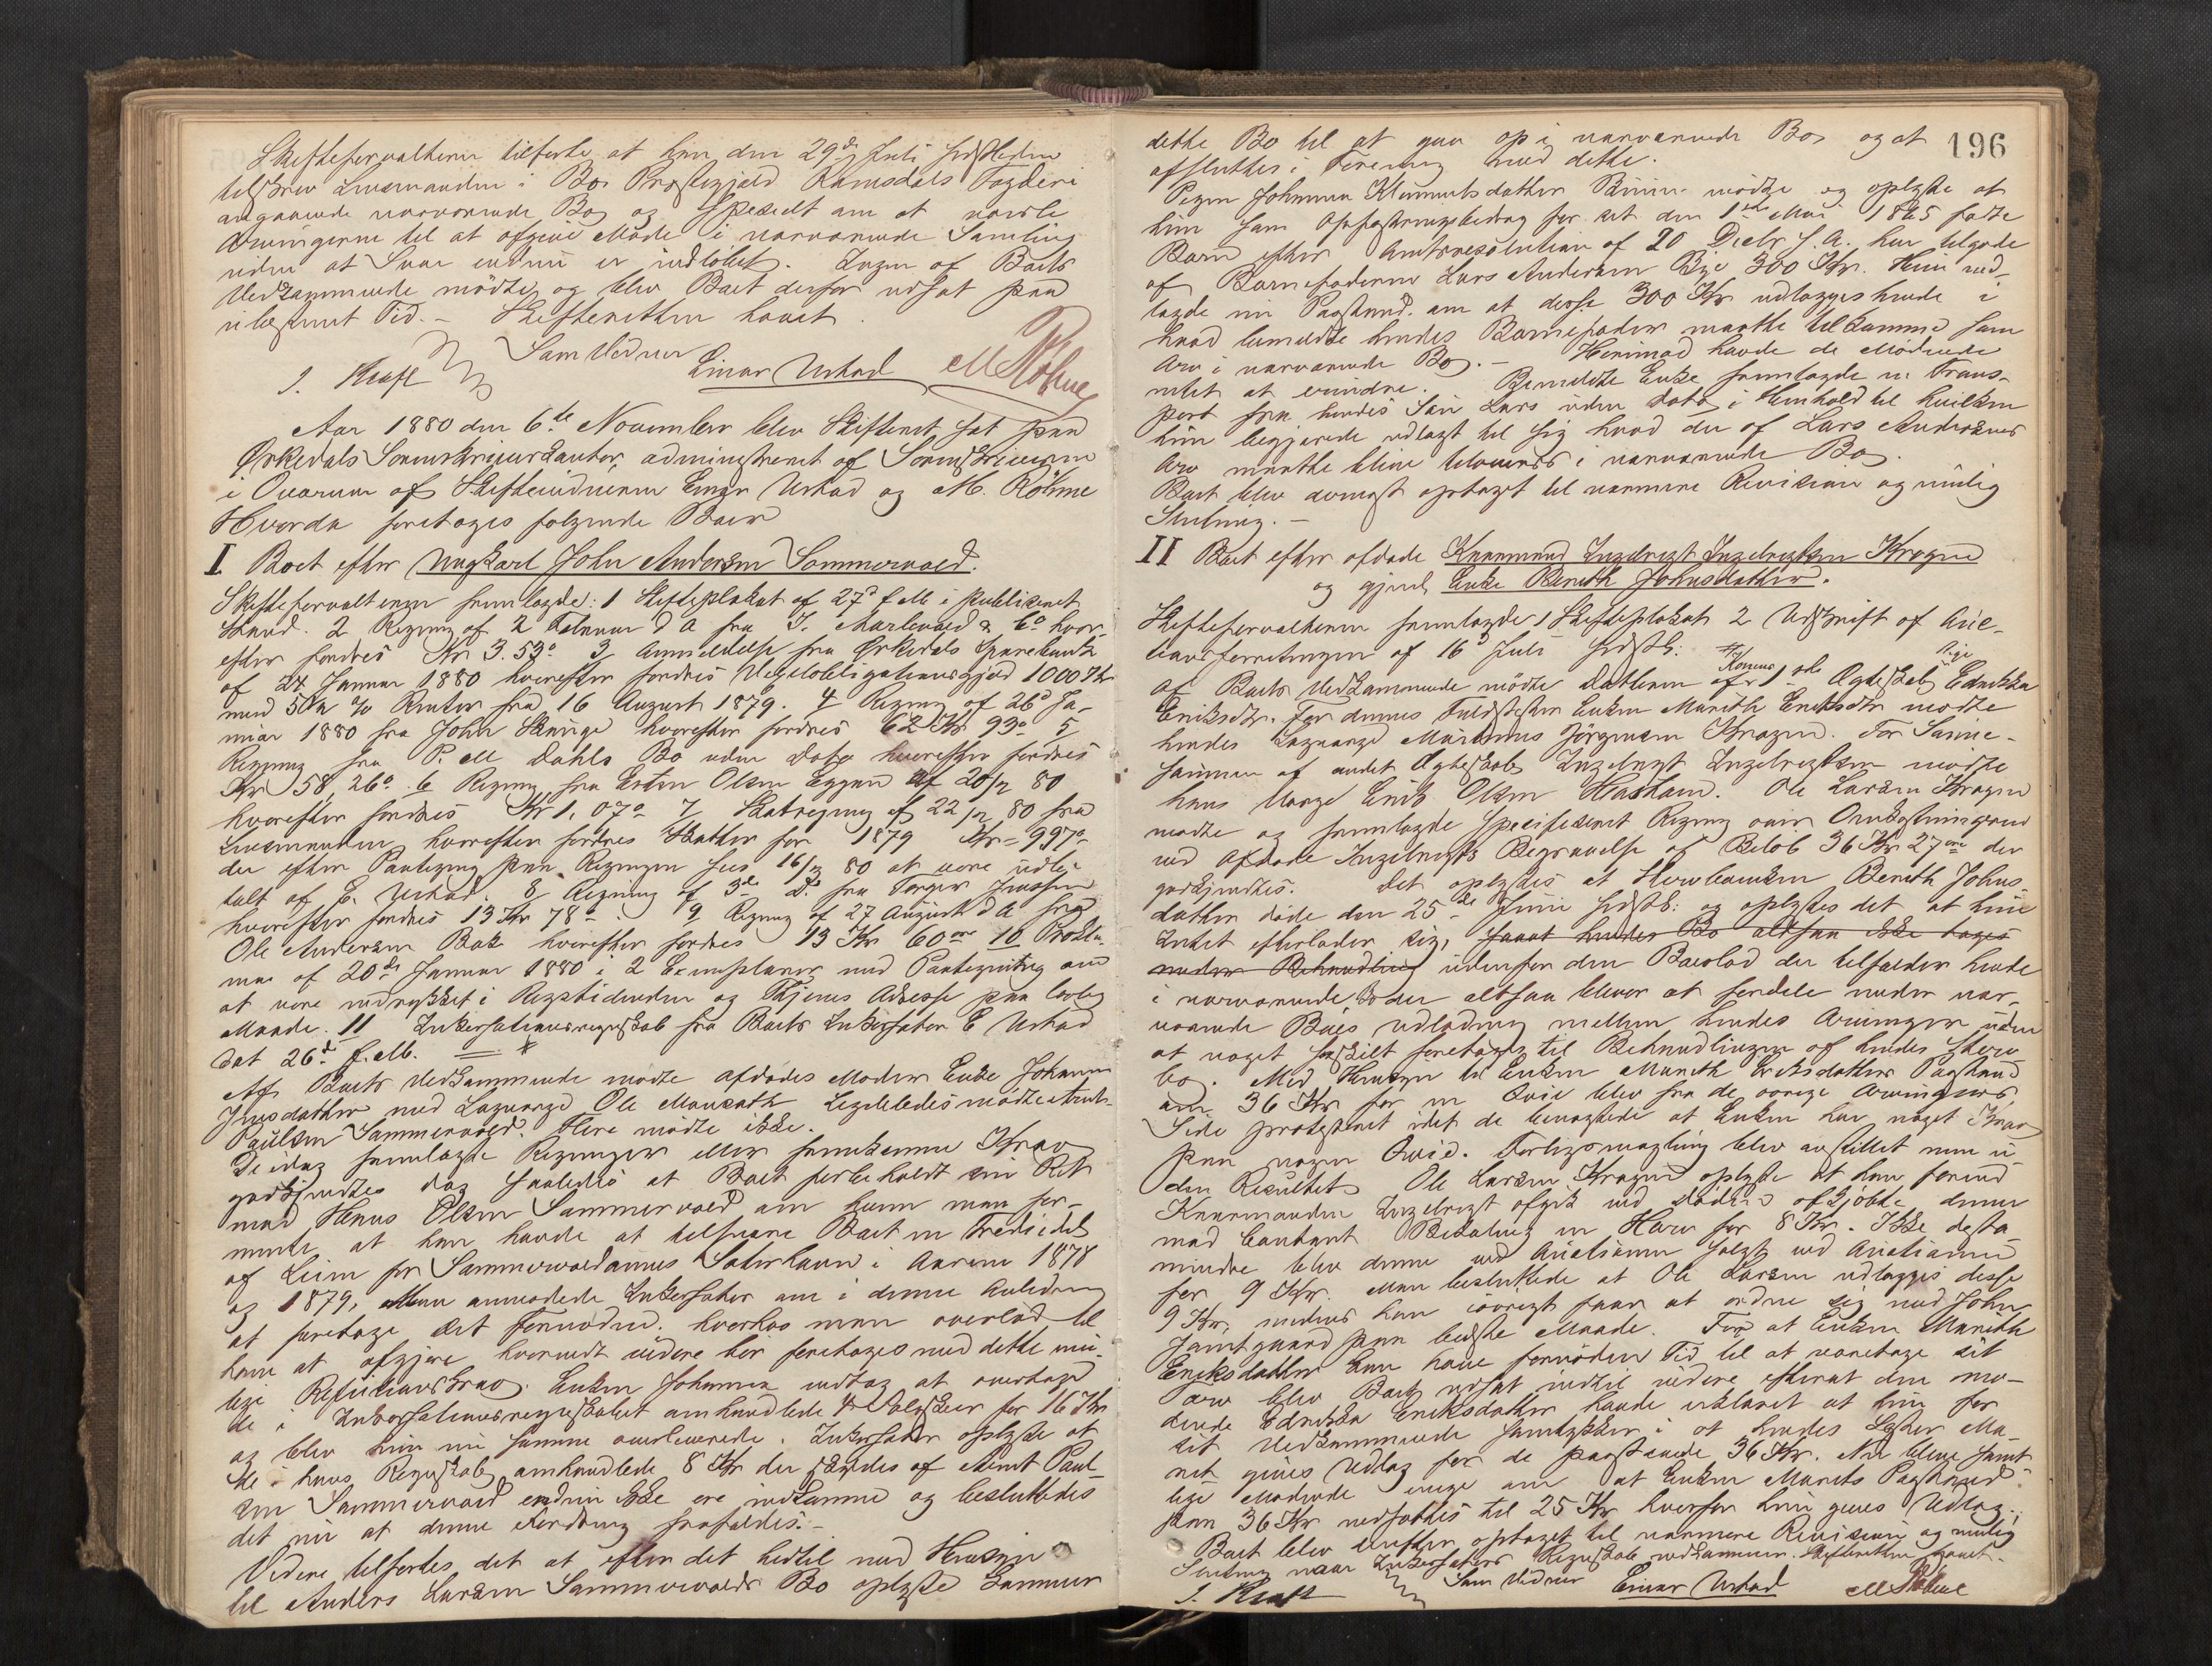 Skifteforvalteren tilførte at han den 29de Juli sidstleden
tilskrev Lensmanden i Bo Præstegjæld Ramsdals Fogderi
angaaende nærværende Bo og specielt om at varsle
Arvingerne til at afgive Møde i nærværende Samling
uden at Svar endnu er indløbet. Ingen af Boets
Vedkommende mødte og blev Boet derfor udsat paa
ubestemt Tid. – Skifteretten hævet
Som Vidner
J. Kraft Einar Urstad M Röhme
Aar 1880 den 6te November blev Skifteret sat paa
Ørkedals Sorenskriverkontor, administreret af Sorenskriveren
i Overvær af Skiftevidnerne Einar Urstad og M. Röhme
Hvorda foretoges følgende Boer
I. Boet efter Ungkarl John Andersen Sommervold.
Skifteforvalteren fremlagde: 1 Skifteplakat af 27d f M i publiceret
Stand. 2 Regning af 2 Februar d A fra J. & Co hvor-
efter fordres Kr 3.53ø 3 Anmeldelse fra Ørkedals Sparebank
af 24 Januar 1880 hvorefter fordres Vexelobligationsgjæld 1000 Kr
med 5 % Renter fra 16 August 1879. 4 Regning af 26d Ja-
nuar 1880 fra John hvorefter fordres 62 Kr. 93ø 5
Regning fra P. M Dahls Bo uden Dato hvorefter fordres
Kr 58, 26ø. 6 Regning fra Esten Olsen Eggen af 20/2 80
hvorefter fordres Kr 1, 07ø 7 Skatregning af 22/2 80 fra
Lensmanden hvorefter fordres Skatter for 1879 Kr = 997ø
der efter Paategning paa Regningen sees 16/3 80 at være udbe-
talt af E. Urstad. 8 Regning af 3de Ds fra Torger Jenssen
hvorefter fordres 13 Kr 78ø. 9 Regning af 27 August d A fra
Ole Andersen Bak hvorefter fordres 13 Kr 60øre 10 Prokla-
ma af 20de Januar 1880 i 2 Exemplarer med Paategning om
at være indrykket i Rigstidenden og Thjems Adresse paa lovlig
Maade. 11 Inkassationsregnskab fra Boets Inkassator E Urstad
dat 26d f. M.
Af Boets Vedkommende mødte afdødes Moder Enke Johanna
Jensdatter med Laugværge Ole Ligeledes mødte Arnt
Paulsen Sommervold. Flere mødte ikke.
De idag fremlagte Regninger eller fremkomne Krav
godkjendtes dog saaledes at Boet forbeholdt sin Ret
mod Hans Olsen Sommervold om hvem man for-
mente at han havde at tilsvare Boet en Trediedel
af Leien for Sommervoldmoens Sæterhavn i Aarene 1878
og 1879, Man anmodede Inkassator om i denne Anledning
at foretage det fornødne. hvorhos man overlod til
ham at afgjøre hvorvidt videre bør foretages med dette mu-
lige Refusionskrav. Enken Johanna indtog at overtage
de i Inkassationsregnskabet omhandlede 4 for 16 Kr
og blev hun nu samme overleverede. Inkassator oplyste at
de i hans Regnskab omhandlede 8 Kr der skyldes af Arnt Paul-
sen Sommervold endnu ikke ere indkomne og besluttedes
det nu at denne Fordring frafaldes. –
Videre tilførtes det at efter det hidtil med Hensyn
til Anders Larsen Sommervolds Bo oplyste kommer
196
dette Bo til at gaa op i nærværende Bo og at
afsluttes i Forening med dette.
Pigen Johanna Klemmetsdatter mødte og oplyste at
hun som Opfostringsbidrag for det den 1ste Mai 1865 fødte
Barn efter Amtsresolution af 20 Decbr s.A. har tilgode
af Barnefaderen Lars Andersen 300 Kr. Hun ned-
lagde nu Paastand om at disse 300 Kr udlægges hende i
hvad bemeldte hendes Barnefader maatte tilkomme som
Arv i nærværende Bo. – Herimod havde de Mødende
intet at erindre. Bemeldte Enke fremlagde en Trans-
port fra hendes Søn Lars uden Dato i Henhold til hvilken
hun begjærede udlagt til sig hvad der af Lars Andersens
Arv maatte blive tilovers i nærværende Bo.
Boet blev dernæst optaget til nærmere Revision og mulig
Slutning. –
II Boet efter afdøde Kaarmand Ingebrigt Ingebrigtsen Kragnæ
og gjenl. Enke Bereth Johnsdatter.
Skifteforvalteren fremlagde 1 Skifteplakat 2 Udskrift af Auc-
tionsforretningen af 16d Juli sidstl:
Af Boets Vedkommende mødte Datteren af Konens 1ste Ægteskab Pige Edrikka
Eriksdtr. For dennes Fuldsøster Enken Mareth Eriksdtr mødte
hendes Laugværge Martinus Jörgensen Kragnæ. For Sønne-
sønnen af andet Ægteskab Ingebrigt Ingebrigtsen mødte
hans Værge Erik Olsen. Ole Larsen Kragnæ
mødte og fremlagde specificeret Regning over Omkostningerne
ved Afdøde Ingebrigts Begravelse af Beløb 36 Kr 27øre der
godkjendtes. Det oplystes at Stervboenken Bereth Johns-
datter døde den 25de Juni sidstl: og oplystes det at hun
Intet efterlader sig, samt hendes Bo altsaa ikke tages
under Behandling udenfor den Boeslod der tilfalder hende
i nærværende Bo der altsaa bliver at fordele under nær-
værende Boes Udlodning mellem hendes Arvinger uden
at noget særskilt foretages til Behandlingen af hendes Sterv-
bo. Med Hensyn til Enken Mareth Eriksdatters Paastand
om 36 Kr for en Qvie blev fra de øvrige Arvingers
Side protesteret idet de benægtede at Enken har noget Krav
paa nogen Qvie. Forligsmægling blev anstillet men u-
den Resultat. Ole Larsen Kragnæ oplyste at han forend
Kaarmanden Ingebrigt afgik ved Døden afkjøbte denne
mod contant Betaling en Harv for 8 Kr. Ikke desto-
mindre blev denne ved Auctionen solgt ved Auctionen
for 9 Kr. Man besluttede at Ole Larsen udlægges disse
9 Kr, medens han iøvrigt faar at ordne sig med John
Jamtgaard paa bedste Maade. For at Enken Mareth
Eriksdatter kan have fornøden Tid til at varetage sit
Tarv blev Boet udsat indtil videre efterat den mø-
dende Edrikka Eriksdatter havde erklæret at hun for
sit Vedkommende samtykker i at hendes Søster Ma-
ret gives Udlæg for de paastaaede 36 Kr. Nu bleve samt-
lige Mødende enige om at Enken Marets Paastand
paa 36 Kr nedsattes til 25 Kr hvorfor hun gives Udlæg.
Boet blev derefter optaget til nærmere Revision og mulig
Slutning naar Inkassators Regnskab indkommer. Skifteretten hævet.
J. Kraft Som Vidner Einar Urstad M Röhme